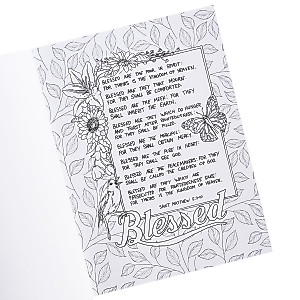 BLESSED ARE THE POOR IN SPIRIT:
FOR THEIRS IS THE KINGDOM OF HEAVEN.
BLESSED ARE THEY THAT MOURN:
FOR THEY SHALL BE COMFORTED.
BLESSED ARE THE MEEK: FOR THEY
SHALL INHERIT THE EARTH.
BLESSED ARE THEY WHICH DO HUNGER
AND THIRST AFTER RIGHTEOUSNESS:
FOR THEY SHALL BE FILLED.
BLESSED ARE THE MERCIFUL:
FOR THEY SHALL OBTAIN MERCY.
BLESSED ARE THE PURE IN HEART:
FOR THEY SHALL SEE GOD.
BLESSED ARE THE PEACEMAKERS: FOR THEY
SHALL BE CALLED THE CHILDREN OF GOD.
BLESSED ARE THEY WHICH ARE
PERSECUTED FOR RIGHTEOUSNESS' SAKE:
FOR THEIRS IS THE KINGDOM OF HEAVEN.
SAINT MATTHEW 5:3-10
Blessed